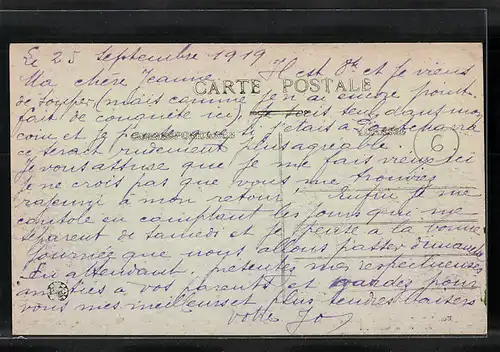 Le 25 septembre 1919
Ma chère Jeanne. Il est 8h et je viens
CARTE POSTALE
de souper, mais comme je n'ai encore point
fait de conquête ici, je suis seul dans mon
coin et je pense que si j'étais à
CORRESPONDANCE
ce serait rudement plus agréable
Je vous assure que je me fais vieux ici
je ne crois pas que vous me trouviez
rajeuni à mon retour. Enfin je me
console en comptant les jours qui me
séparent de samedi et je pense à la bonne
journée que nous allons passer dimanche
En attendant, présentez mes respectueuses
amitiés à vos parents et gardez pour
vous mes meilleurs et plus tendres baisers
votre Jo
6